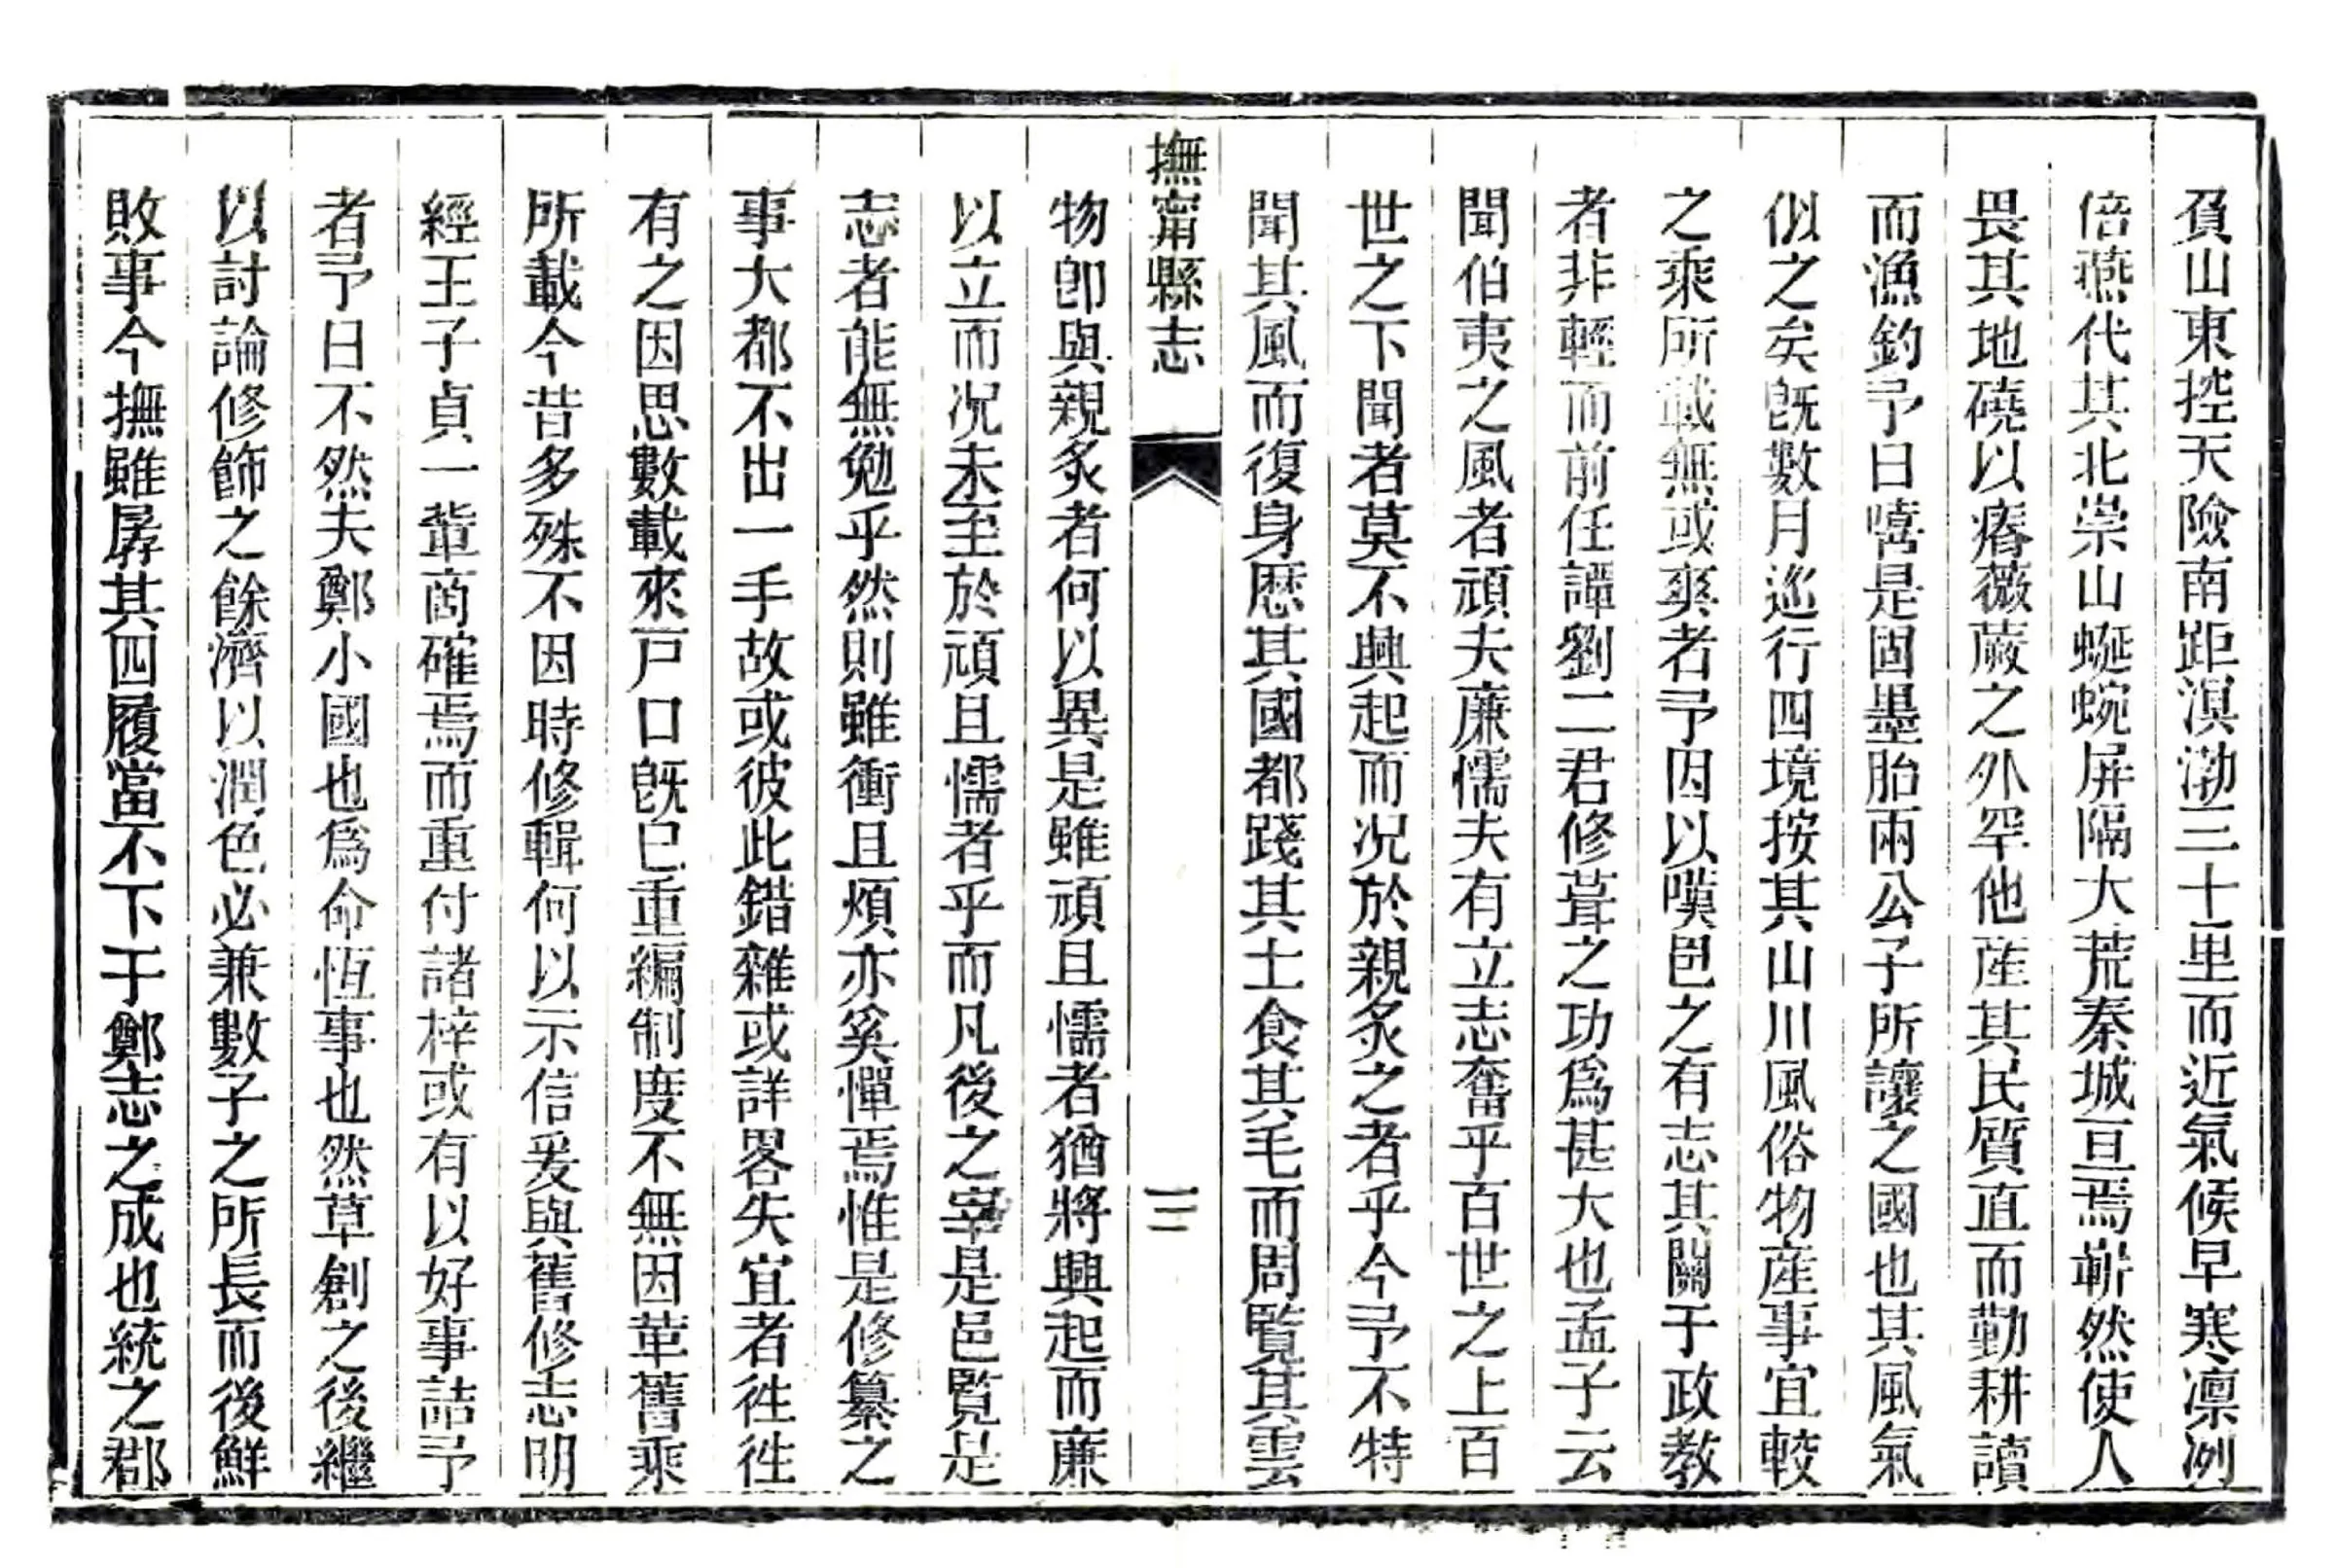 負山東控天險南距溟渤三十里而近氣候早寒凛冽
倍燕代其北崇山蜿蜒屏隔大荒秦城亘焉嶄然使人
畏其地磽以瘠薇蕨之外罕他產其民質直而勤耕讀
而漁釣予曰嘻是固墨胎兩公子所讓之國也其風氣
似之矣旣數月巡行四境按其山川風俗物產事宜較
之乘所載無或爽者予因以嘆邑之有志其關于政教
者非輕而前任譚劉二君修葺之功爲甚大也孟子云
聞伯夷之風者頑夫廉懦夫有立志奮乎百世之上百
世之下聞者莫不興起而况於親炙之者乎今予不特
聞其風而復身歴其國都踐其土食其毛而周覧其雲
撫甯縣志
三
物卽與親炙者何以異是雖頑且懦者猶將興起而廉
以立而况未至於頑且懦者乎而凡後之宰是邑覧是
志者能無勉乎然則雖衝且煩亦奚憚焉惟是修纂之
事大都不出一手故或彼此錯雜或詳畧失宜者徃徃
有之因思數載來戸口旣已重編制度不無因革舊乘
所載今昔多殊不因時修輯何以示信爰與舊修志明
經王子貞一輩商確焉而重付諸梓或有以好事詰予
者予曰不然夫鄭小國也爲命恆事也然草創之後繼
以討論修飾之餘濟以潤色必兼數子之所長而後鮮
敗事今撫雖孱其四履當不下于鄭志之成也統之郡